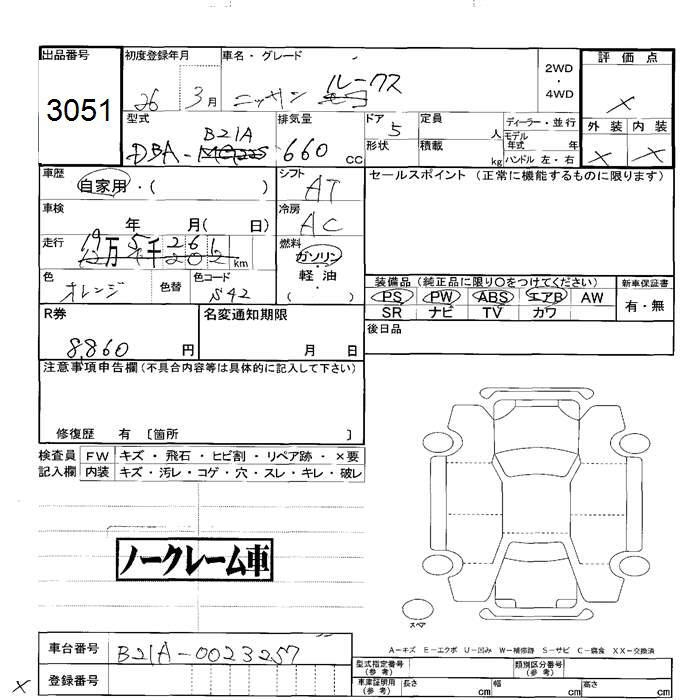 出品番号 初度登録年月 車名・グレード 2WD・4WD 評価点
3051 26 3月 ニッサン ルークス ×
型式 排気量 ドア 定員 人 ディーラー・並行 外装 内装
DBA- B21A 660 CC 5 形状 積載 kg モデル年式 年 ハンドル 左・右 × ×
車歴 自家用・( ) シフト AT セールスポイント (正常に機能するものに限ります)
車検 年 月( 日) 冷房 AC
走行 万 千 261 km 燃料 ガソリン・軽油・( )
色 オレンジ 色替 色コード S42
装備品 (純正品に限り○をつけてください) 新車保証書
PS PW ABS エアB AW 有・無
SR ナビ TV カワ
R券 8,860 円 名変通知期限 月 日 後日品
注意事項申告欄(不具合内容等は具体的に記入して下さい)
修復歴 有 〔箇所 〕
検査員 FW キズ・飛石・ヒビ割・リペア跡・×要
記入欄 内装 キズ・汚レ・コゲ・穴・スレ・キレ・破レ
ノークレーム車
スペア
A-キズ E-エクボ U-凹み W-補修跡 S-サビ C-腐食 XX-交換済
車台番号 B21A-0023257 型式指定番号(参考) 類別区分番号(参考)
× 登録番号 車庫証明用(参考) 長さ cm 幅 cm 高さ cm